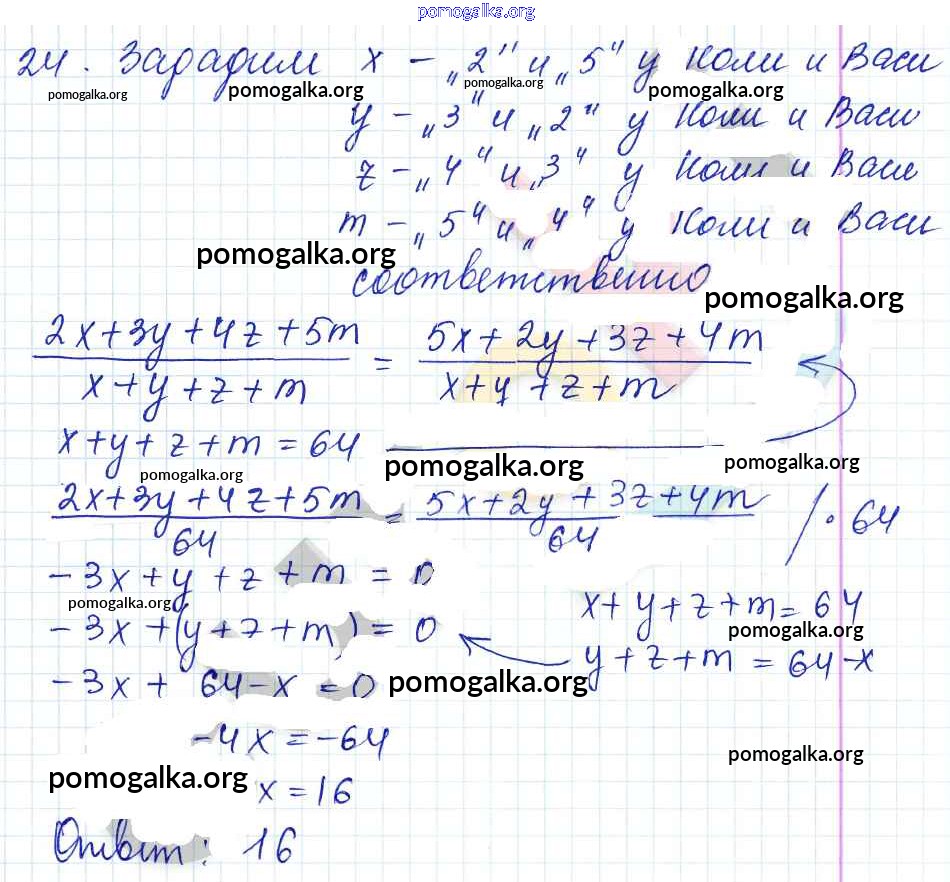 pomogalka.org
24. Зададим x – „2" и „5" у Коли и Васи
pomogalka.org pomogalka.org pomogalka.org pomogalka.org
y – „3" и „2" у Коли и Васи
z – „4" и „3" у Коли и Васи
m – „5" и „4" у Коли и Васи
pomogalka.org
соответственно
pomogalka.org
2x+3y+4z+5m / x+y+z+m = 5x+2y+3z+4m / x+y+z+m
x+y+z+m = 64
pomogalka.org pomogalka.org pomogalka.org
2x+3y+4z+5m / 64 = 5x+2y+3z+4m / 64 /·64
-3x+y+z+m = 0
pomogalka.org
x+y+z+m=64
-3x+(y+z+m)=0
pomogalka.org
y+z+m=64-x
-3x+64-x=0
pomogalka.org
-4x=-64
pomogalka.org
pomogalka.org
x=16
Ответ: 16